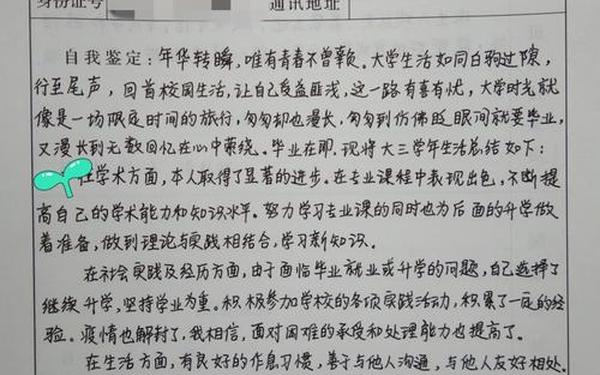 身份证号
通讯地址
自我鉴定：年华转瞬，唯有青春不曾辜负。大学生活如同白驹过隙，
行至尾声，回首校园生活，让自己受益匪浅，这一路有喜有忧，大学时光就
像是一场限定时间的旅行，匆匆却也漫长，匆匆到仿佛眨眼间就要毕业，
又漫长到无数回忆在心中萦绕。毕业在即，现将大三学年生活总结如下：
在学术方面，本人取得了显著的进步。在专业课程中表现出色，不断提
高自己的学术能力和知识水平。努力学习专业课的同时也为后面的升学做
着准备，做到理论与实践相结合，学习新知识。
在社会实践及经历方面，由于面临毕业就业或升学的问题，自己选择了
继续升学，坚持学业为重。积极参加学校的各项实践活动，积累了一定的经
验。疫情也解封了，我相信，面对困难的承受和处理能力也提高了。
在生活方面，有良好的作息习惯，善于与他人沟通，与他人友好相处。